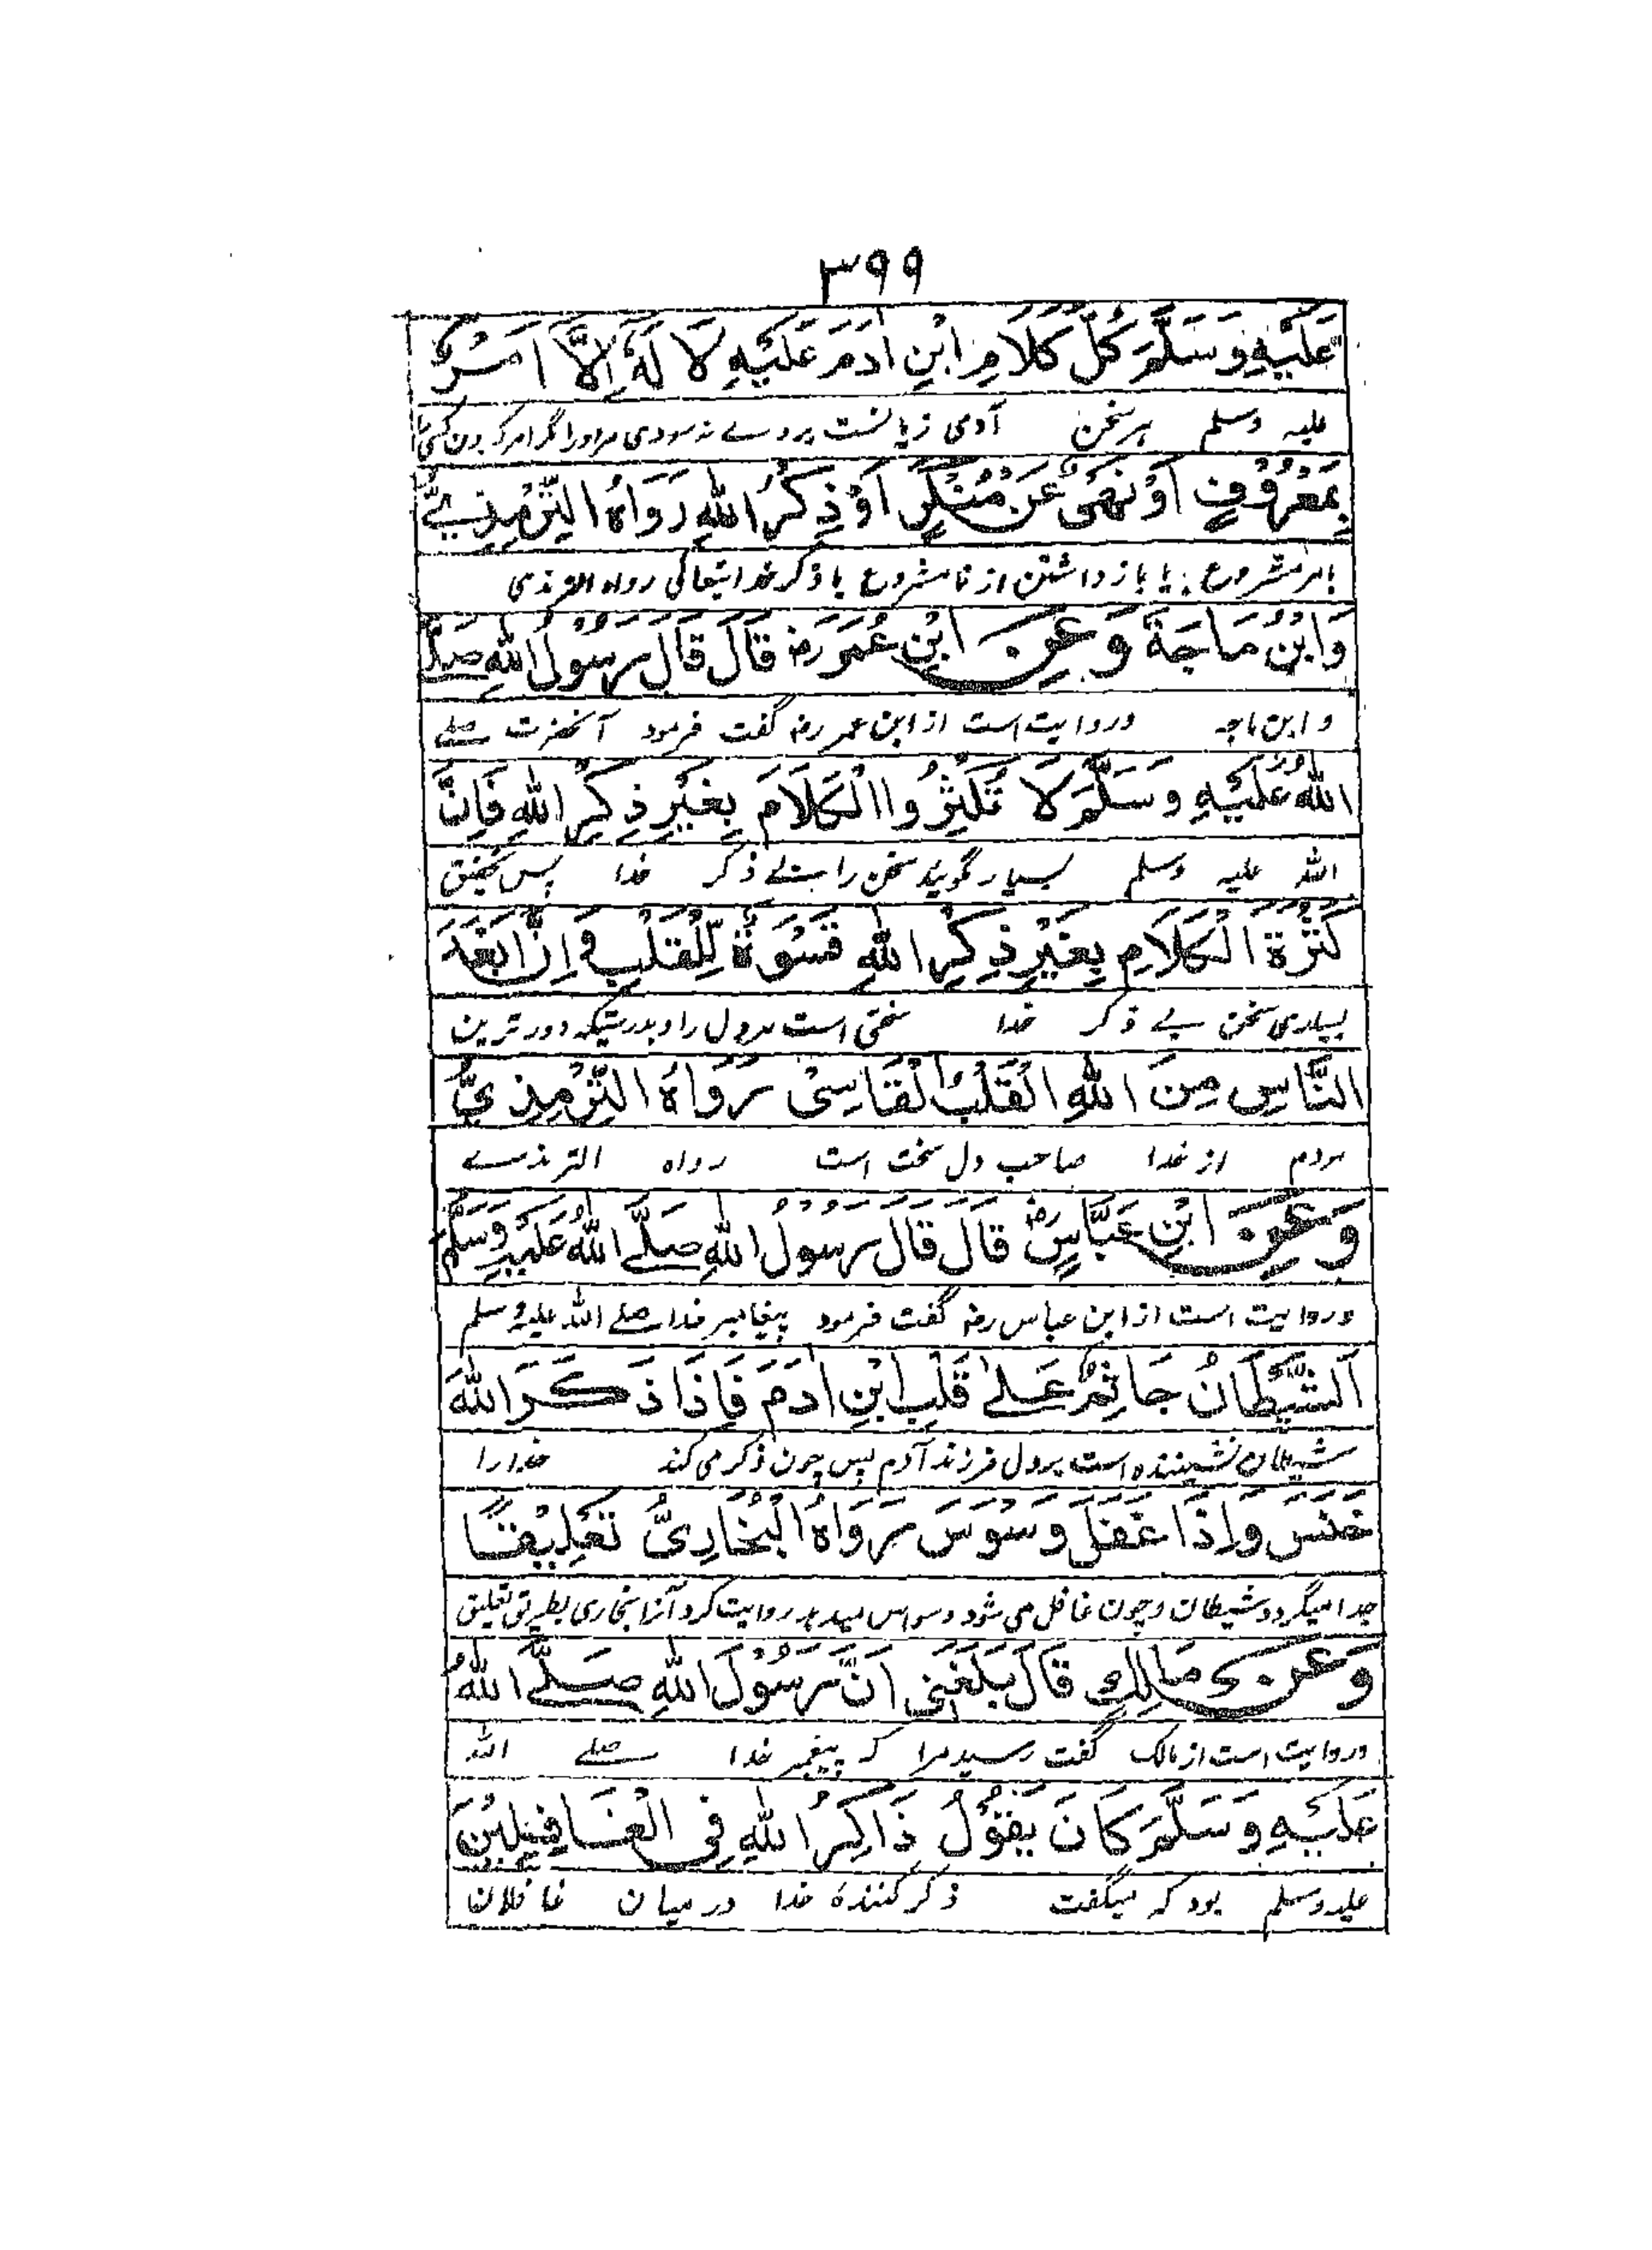 ٣٩٩
عَلَيْهِ وَسَلَّمَ كُلُّ كَلَامِ ابْنِ اٰدَمَ عَلَيْهِ لَا لَهٗ اِلَّا اَمْرٌ
علیہ وسلم ہر سخن آدمی زیانست بروے نہ سودی مر اورا مگر امر کردن
بِمَعْرُوْفٍ اَوْ نَهْیٌ عَنْ مُنْكَرٍ اَوْ ذِكْرُ اللهِ رَوَاهُ التِّرْمِذِيُّ
بامر مشروع یا باز داشتن از نا مشروع یا ذکر خدایتعالی رواه الترمذی
وَابْنُ مَاجَةَ وَعَنِ ابْنِ عُمَرَ رض قَالَ قَالَ رَسُوْلُ اللهِ صَلَّے
و ابن ماجه وروایت است از ابن عمر رض گفت فرمود آنحضرت صلے
اللهُ عَلَيْهِ وَسَلَّمَ لَا تُكْثِرُوا الْكَلَامَ بِغَيْرِ ذِكْرِ اللهِ فَاِنَّ
الله علیه وسلم بسیار مگوئید سخن را بے ذکر خدا پس تحقیق
كَثْرَةَ الْكَلَامِ بِغَيْرِ ذِكْرِ اللهِ قَسْوَةٌ لِّلْقَلْبِ وَاِنَّ اَبْعَدَ
بسیاری سخن بے ذکر خدا سختی است مردل را و بدرستیکه دور ترین
النَّاسِ مِنَ اللهِ الْقَلْبُ الْقَاسِیْ رَوَاهُ التِّرْمِذِيُّ
مردم از خدا صاحب دل سخت است رواه الترمذے
وَعَنِ ابْنِ عَبَّاسٍ رض قَالَ قَالَ رَسُوْلُ اللهِ صَلَّے اللهُ عَلَيْهِ وَسَلَّمَ
وروایت است از ابن عباس رض گفت فرمود پیغامبر خدا صلے الله علیه وسلم
اَلشَّيْطَانُ جَاثِمٌ عَلٰے قَلْبِ ابْنِ اٰدَمَ فَاِذَا ذَكَرَ اللهَ
شیطان نشیننده است بردل فرزند آدم پس چون ذکر می کند خدا را
خَنَسَ وَاِذَا غَفَلَ وَسْوَسَ رَوَاهُ الْبُخَارِیُّ تَعْلِيْقًا
جدا میگردد شیطان و چون غافل می شود وسواس میدہد روایت کرد آنرا بخاری بطریق تعلیق
وَعَنْ مَالِكٍ قَالَ بَلَغَنِیْ اَنَّ رَسُوْلَ اللهِ صَلَّے اللهُ
وروایت است از مالک گفت رسید مرا کہ پیغمبر خدا صلے الله
عَلَيْهِ وَسَلَّمَ كَانَ يَقُوْلُ ذَاكِرُ اللهِ فِی الْغَافِلِيْنَ
علیه وسلم بود کہ میگفت ذکر کنندۂ خدا درمیان غافلان